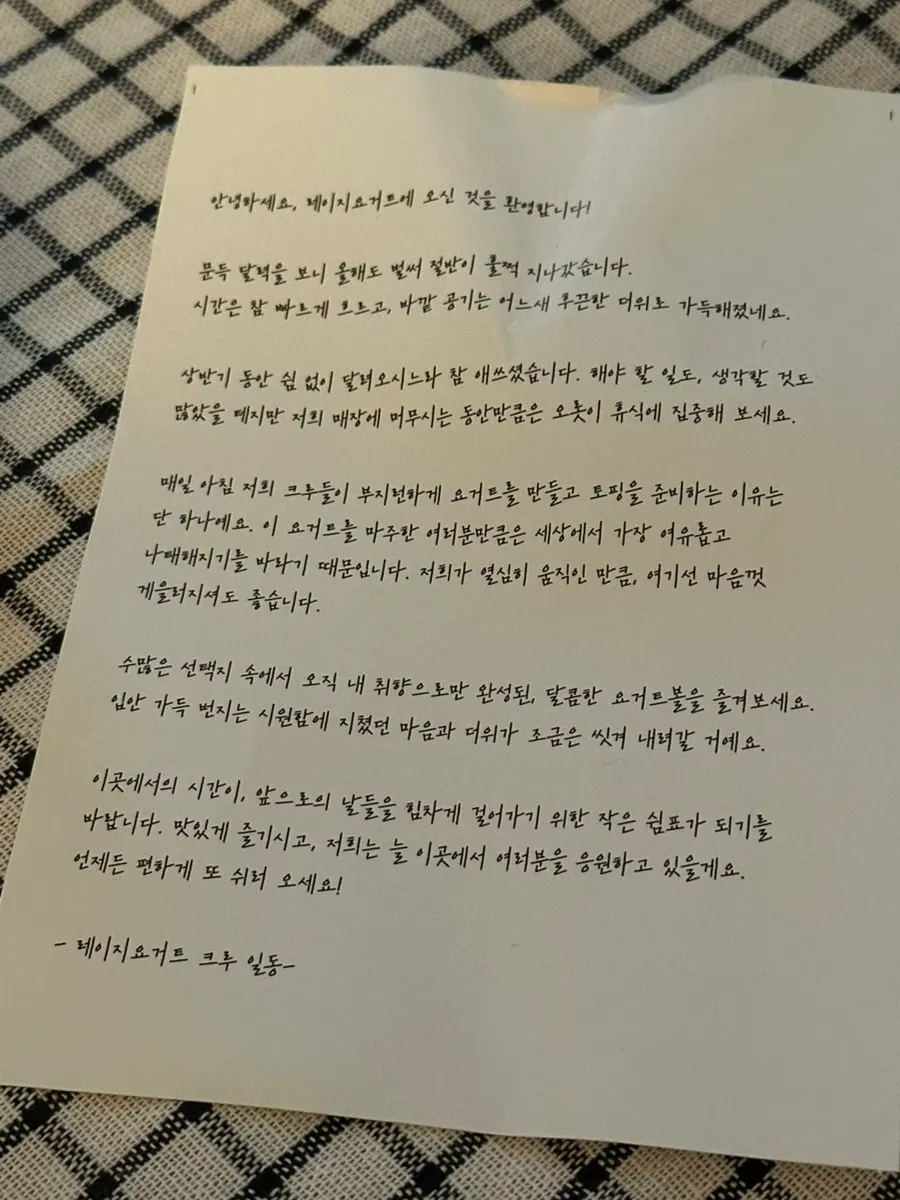 안녕하세요, 레이지요거트에 오신 것을 환영합니다!
문득 달력을 보니 올해도 벌써 절반이 훌쩍 지나갔습니다.
시간은 참 빠르게 흐르고, 바깥 공기는 어느새 후끈한 더위로 가득해졌네요.
상반기 동안 쉼 없이 달려오시느라 참 애쓰셨습니다. 해야 할 일도, 생각할 것도
많았을 테지만 저희 매장에 머무시는 동안만큼은 오롯이 휴식에 집중해 보세요.
매일 아침 저희 크루들이 부지런하게 요거트를 만들고 토핑을 준비하는 이유는
단 하나예요. 이 요거트를 마주한 여러분만큼은 세상에서 가장 여유롭고
나태해지기를 바라기 때문입니다. 저희가 열심히 움직인 만큼, 여기선 마음껏
게을러지셔도 좋습니다.
수많은 선택지 속에서 오직 내 취향으로만 완성된, 달콤한 요거트볼을 즐겨보세요.
입안 가득 번지는 시원함에 지쳤던 마음과 더위가 조금은 씻겨 내려갈 거예요.
이곳에서의 시간이, 앞으로의 날들을 힘차게 걸어가기 위한 작은 쉼표가 되기를
바랍니다. 맛있게 즐기시고, 저희는 늘 이곳에서 여러분을 응원하고 있을게요.
언제든 편하게 또 쉬러 오세요!
- 레이지요거트 크루 일동-